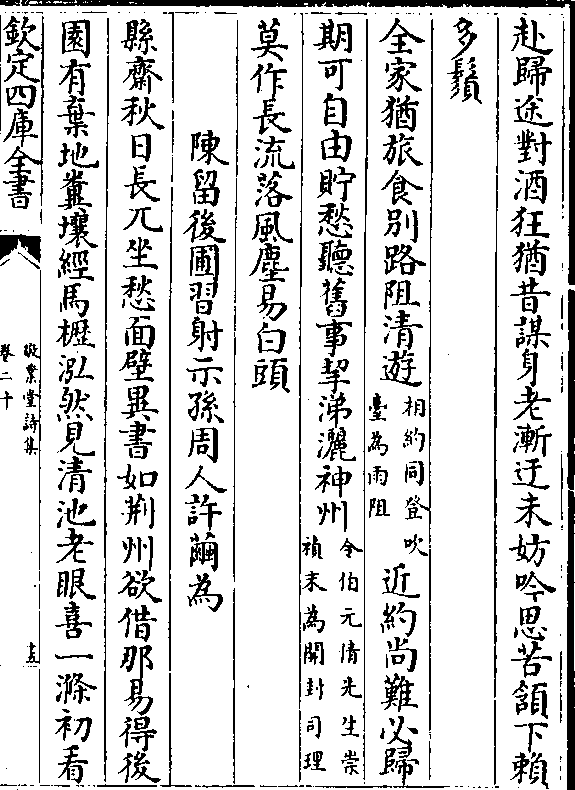 赴歸途對酒狂猶昔謀身老漸迂未妨吟思苦頷下賴
多鬚
全家猶旅食別路阻清遊相約同登吹臺為雨阻近約尚難必歸
期可自由貯愁聽舊事挈涕灑神州令伯元倩先生崇禎末為開封司理
莫作長流落風塵易白頭
陳留後圃習射示孫周人許繭為
縣齋秋日長兀坐愁面壁異書如荆州欲借那易得後
園有棄地糞壤經馬櫪泓然見清池老眼喜一滌初看
欽定四庫全書
敬業堂詩集
卷二十
十五